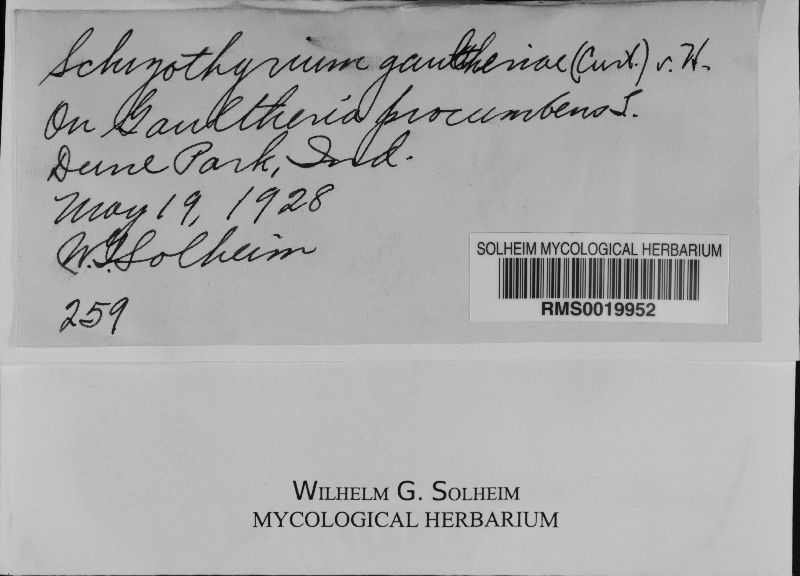 Schizothyrium gaultheriae (Curt.) v. H.
On Gaultheria procumbens L.
Dune Park, Ind.
May 19, 1928
W.G. Solheim
259
SOLHEIM MYCOLOGICAL HERBARIUM
RMS0019952
WILHELM G. SOLHEIM
MYCOLOGICAL HERBARIUM